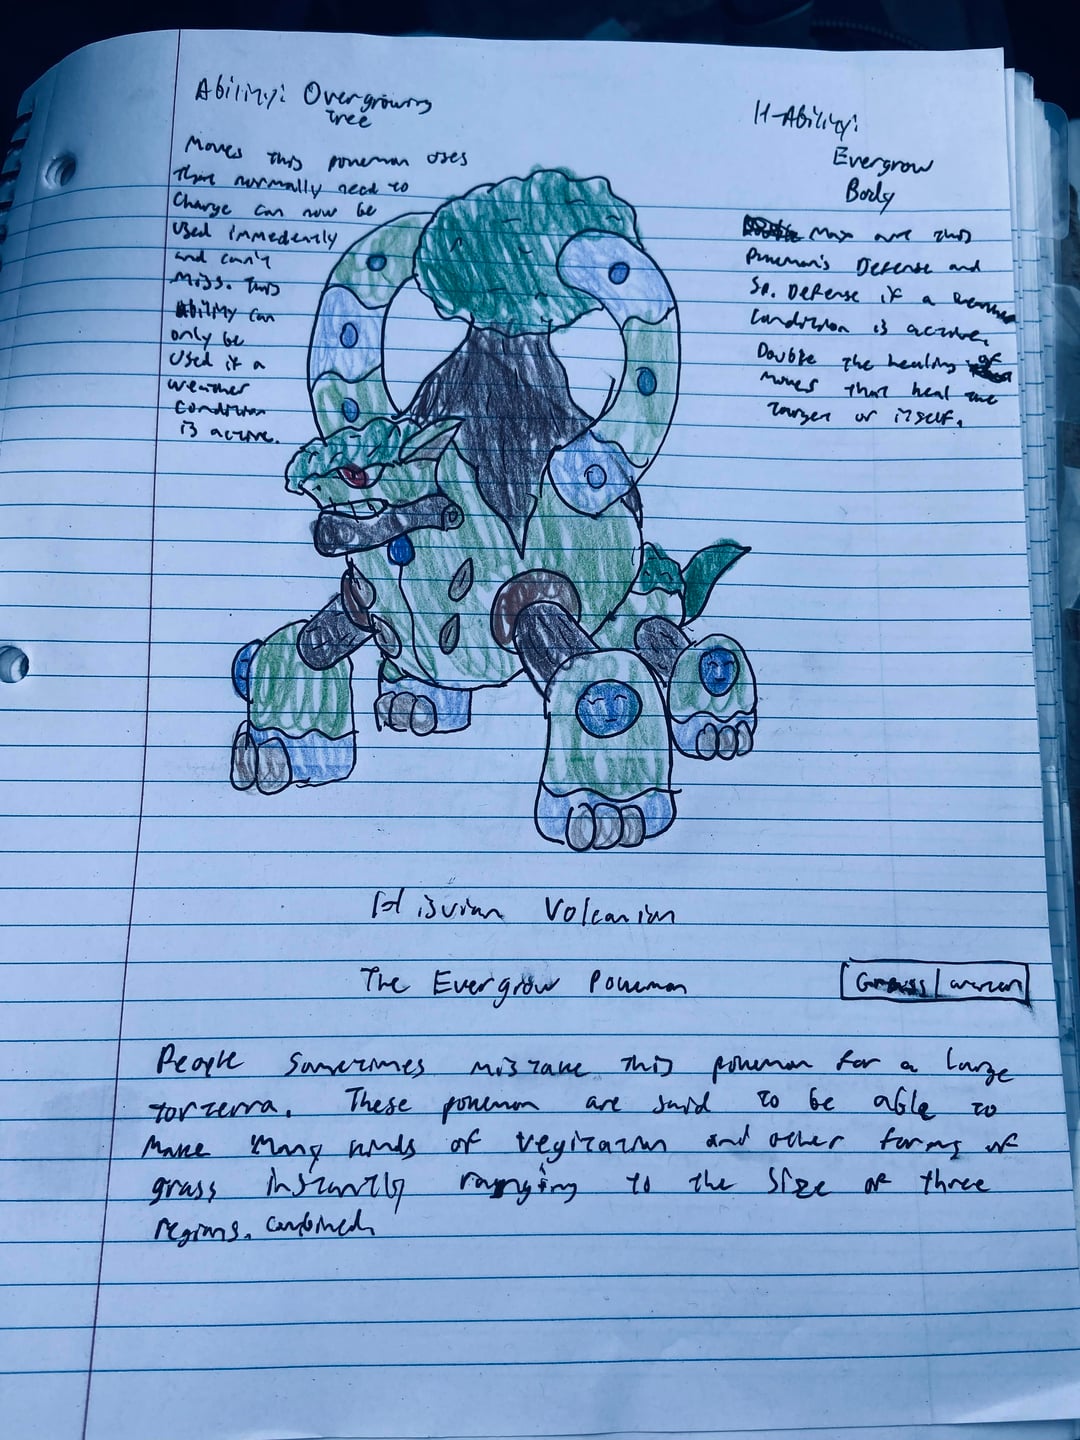 Ability: Overgrowing
Tree
Moves this pokemon uses
that normally need to
Charge can now be
used immedently
and can't
miss. This
Ability can
only be
used if a
weather
condition
is active.
H-Ability:
Evergrow
Body
Max are this
Pokemon's Defense and
Sp. Defense if a weather
condition is active.
Double the healing of
moves that heal the
target or itself.
Hisuian Volcanion
The Evergrow Pokemon
Grass
People sometimes mistake this pokemon for a large
torterra. These pokemon are said to be able to
make many kinds of vegitation and other forms of
grass instantly ranging to the size of three
regions. combined.